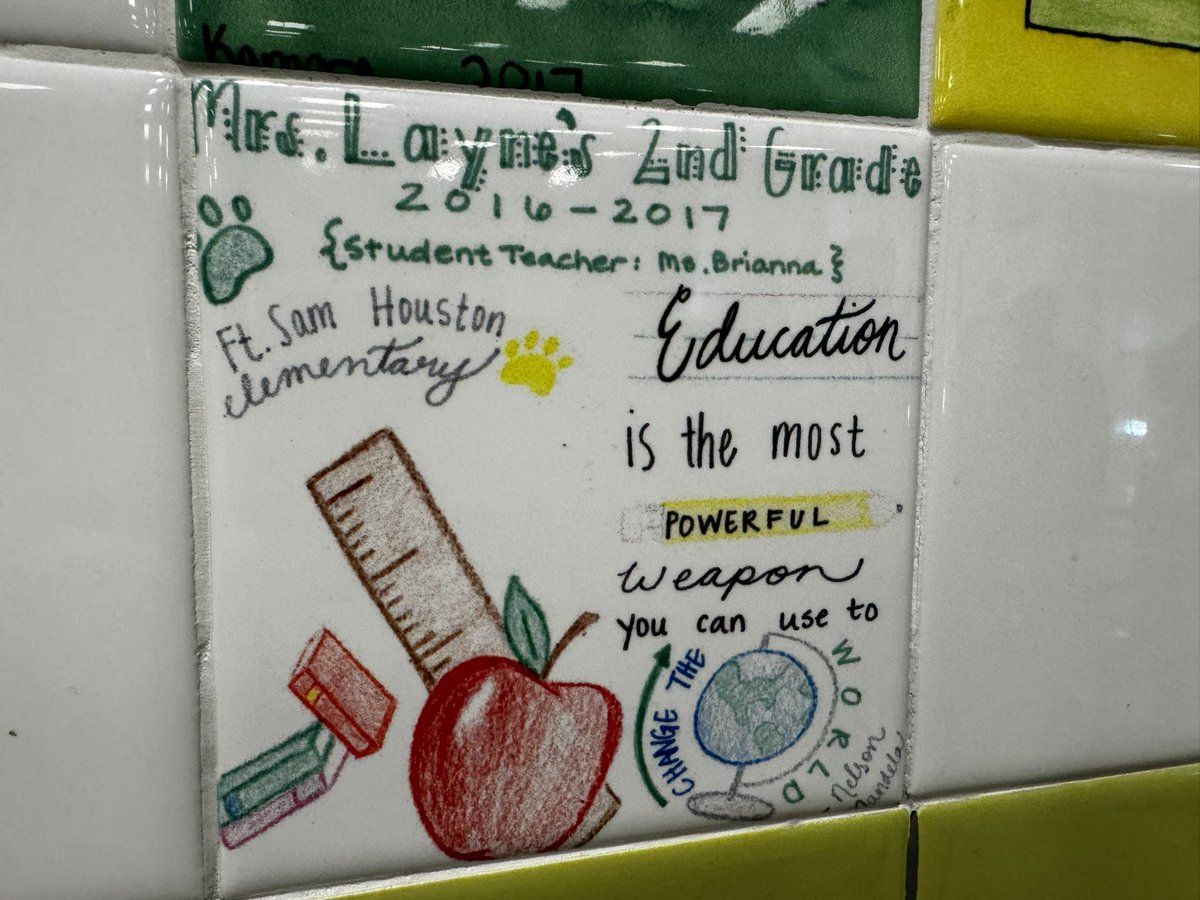 2017
Mrs. Layne's 2nd Grade
2016-2017
{Student Teacher: Ms. Brianna}
Ft. Sam Houston
elementary
Education
is the most
POWERFUL
weapon
you can use to
CHANGE THE
WORLD
Nelson
Mandela